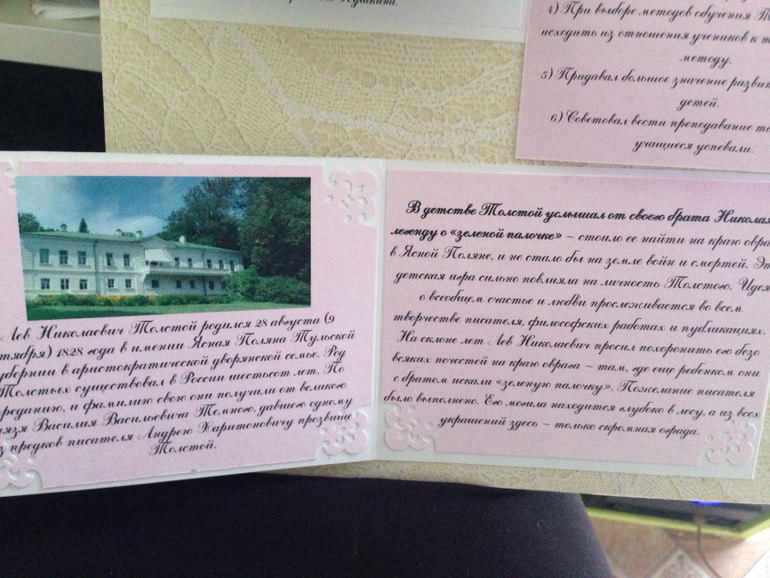 Пушкина.
4) При выборе методов обучения
исходить из отношения учеников к
методу.
5) Придавал большое значение
детей.
6) Советовал вести преподавание
учащиеся успевали.
Лев Николаевич Толстой родился 28 августа (9
1828 года в имении Ясная Поляна Тульской
губернии в аристократической дворянской семье. Род
Толстых существовал в России шестьсот лет. По
преданию, и фамилию свою они получили от великого
князя Василия Васильевича Темного, давшего одному
из предков писателя Андрею Харитоновичу прозвище
Толстой.
В детстве Толстой услышал от своего брата
легенду о «зеленой палочке» – стоило ее найти на краю
в Ясной Поляне, и не стало бы на земле войн и смертей.
детская игра сильно повлияла на личность Толстого.
о всеобщем счастье и любви прослеживается во всем
творчестве писателя, философских работах и публикациях.
На склоне лет Лев Николаевич просил похоронить его безо
всяких почестей на краю оврага – там, где еще ребенком они
с братом искали «зеленую палочку». Пожелание писателя
было выполнено. Его могила находится глубоко в лесу, а из всех
украшений здесь – только скромная ограда.